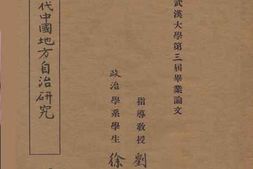 武漢大學第三屆畢業論文
代中國地方自治研究
指導教授 劉
政治學系學生 徐